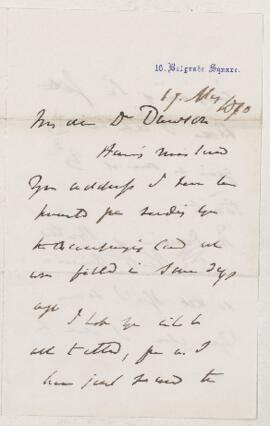 16, Belgrave Square.
My dear Dr Dawson
Having mislaid
your address I have been
prevented from sending you
the accompanying Card
was filled in some days
ago
I hope you will be
able to attend, for as I
have just the